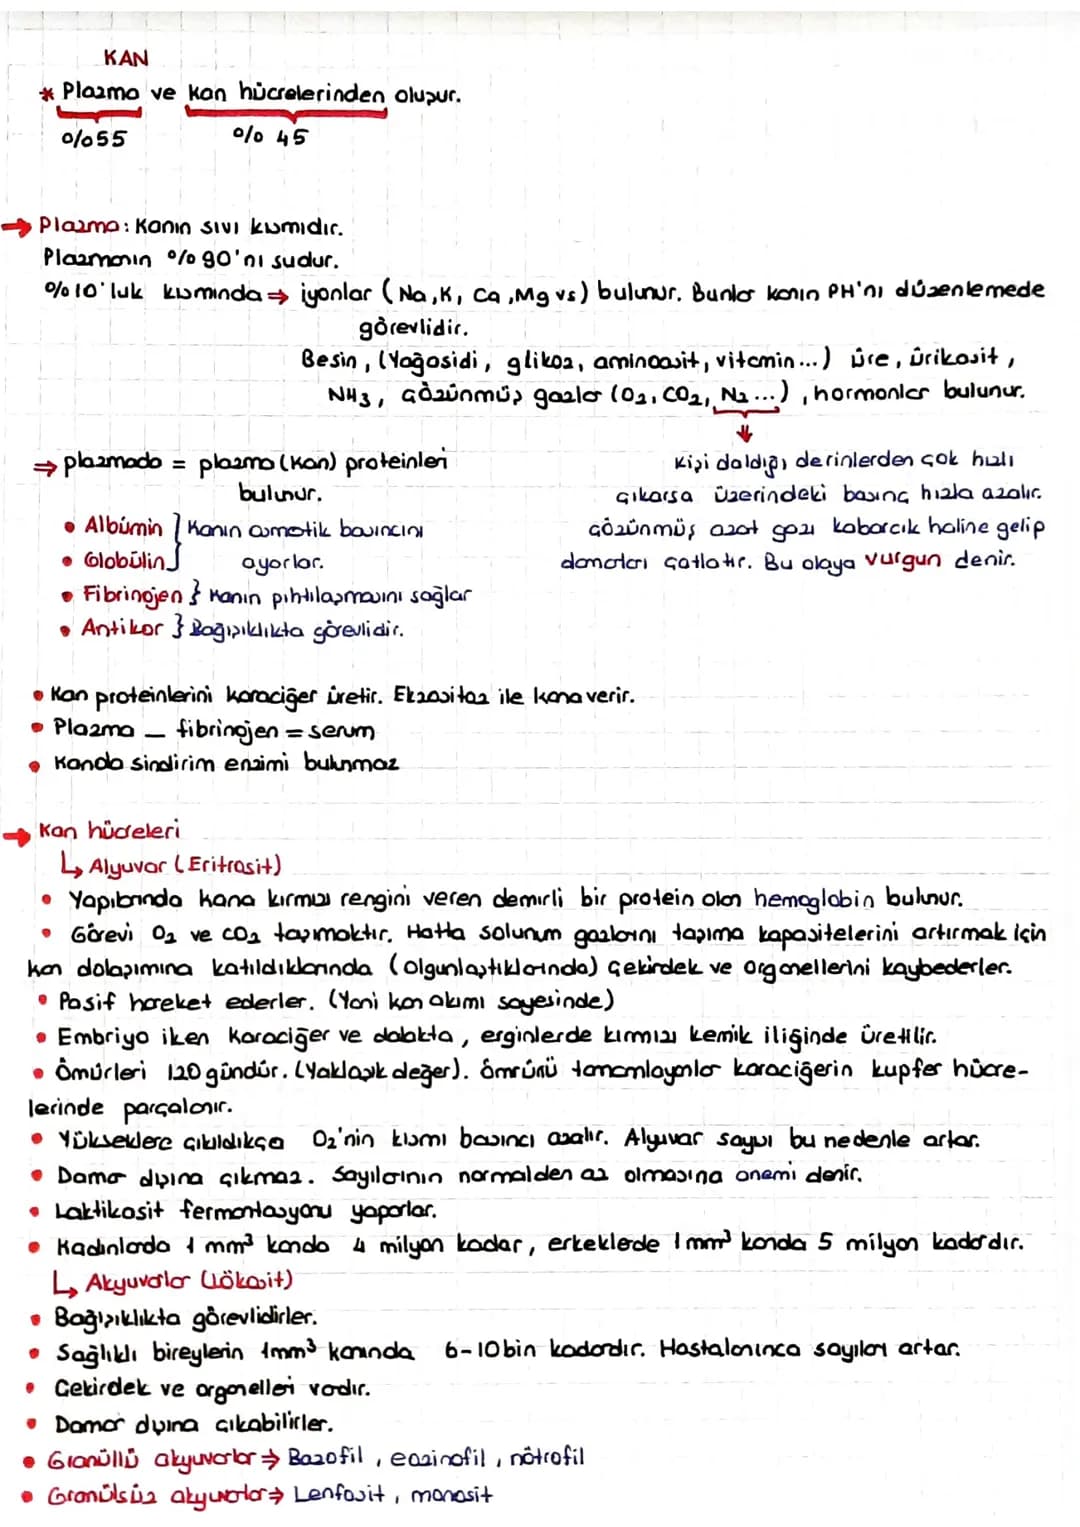 KAN
* Plazma ve kan hücrelerinden oluşur.
%55 % 45
→ Plazma: Kanın sıvı kısmıdır.
Plazmanın %90'nı sudur.
%10'luk kısmında ⇒ iyonlar (Na, K, Ca, Mg vs) bulunur. Bunlar kanın PH'nı düzenlemede
görevlidir.
Besin, (Yağasidi, glikoz, aminoasit, vitamin...) üre, ürikasit,
NH3, çözünmüş gazlar (O2, CO2, N2...), hormonlar bulunur.
⇒ plazmada = plazma (kan) proteinleri
bulunur.
• Albümin } Kanın osmotik basıncını
• Globülin } ayarlar.
• Fibrinojen } Kanın pıhtılaşmasını sağlar
• Antikor } Bağışıklıkta görevlidir.
Kişi daldığı derinlerden çok hızlı
çıkarsa üzerindeki basınç hızla azalır.
Çözünmüş azot gazı kabarcık haline gelip
damarları çatlatır. Bu olaya vurgun denir.
• Kan proteinlerini karaciğer üretir. Ekzositoz ile kana verir.
• Plazma – fibrinojen = serum
• Kanda sindirim enzimi bulunmaz
→ Kan hücreleri
↳ Alyuvar (Eritrosit)
• Yapılarında kana kırmızı rengini veren demirli bir protein olan hemoglobin bulunur.
• Görevi O2 ve CO2 taşımaktır. Hatta solunum gazlarını taşıma kapasitelerini artırmak için
kan dolaşımına katıldıklarında (olgunlaştıklarında) çekirdek ve organellerini kaybederler.
• Pasif hareket ederler. (Yani kan akımı sayesinde)
• Embriyo iken karaciğer ve dalakta, erginlerde kırmızı kemik iliğinde üretilir.
• Ömürleri 120 gündür. (Yaklaşık değer). Ömrünü tamamlayanlar karaciğerin kupfer hücre-
lerinde parçalanır.
• Yükseklere çıkıldıkça O2'nin kısmı basıncı azalır. Alyuvar sayısı bu nedenle artar.
• Damar dışına çıkmaz. Sayılarının normalden az olmasına anemi denir.
• Laktikasit fermantasyonu yaparlar.
• Kadınlarda 1 mm³ kanda 4 milyon kadar, erkeklerde 1 mm³ kanda 5 milyon kadardır.
↳ Akyuvarlar (Lökosit)
• Bağışıklıkta görevlidirler.
• Sağlıklı bireylerin 1mm³ kanında 6-10 bin kadardır. Hastalanınca sayıları artar.
• Çekirdek ve organelleri vardır.
• Damar dışına çıkabilirler.
• Granüllü akyuvarlar ⇒ Bazofil, eozinofil, nötrofil
• Granülsüz akyuvarlar ⇒ Lenfosit, monosit